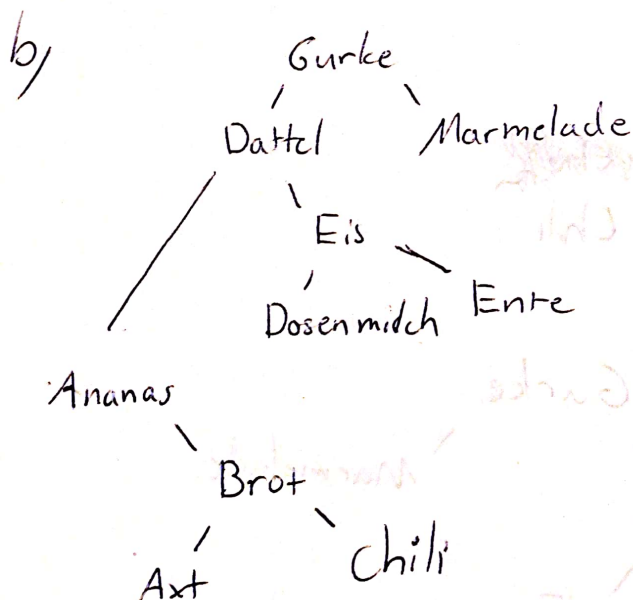 b)
Gurke
Dattel Marmelade
Eis
Dosenmilch Ente
Ananas
Brot
Axt Chili